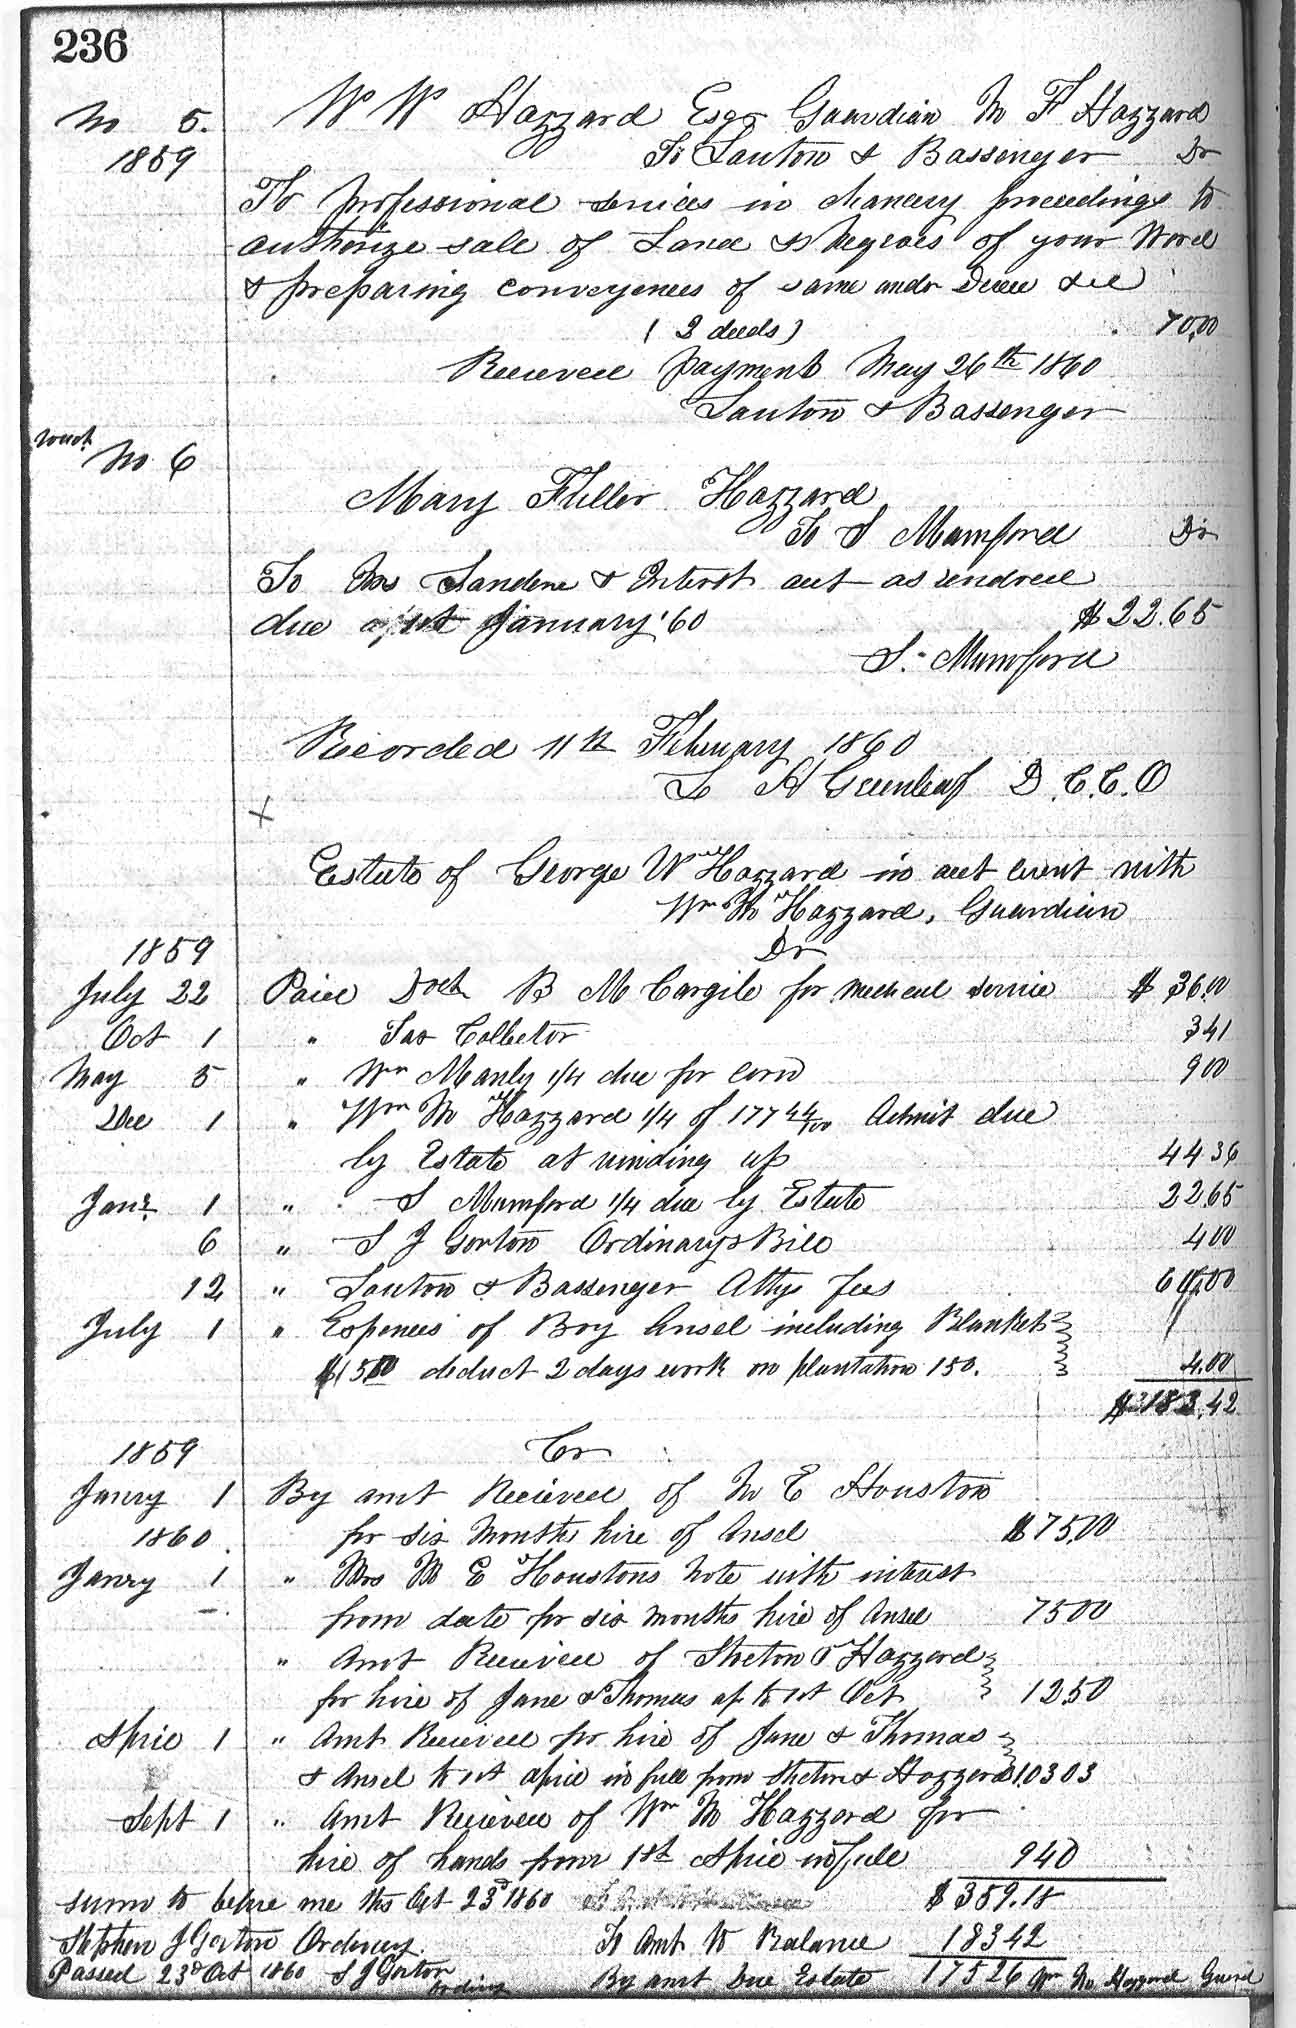 236
No 5. W W Hazzard Esqr Guardian M F Hazzard
1859 To Lauton & Bassenger Dr
To professional services in Chancery proceedings to
authorize sale of Land & Negroes of your Ward
& preparing conveyences of same under Decree &c
( 2 deeds) 70.00
Recieved payment May 26th 1860
Lauton & Bassenger
vouch.
No 6
Mary Fuller Hazzard
To S Mumford Dr
To & Interst act as rendred
due 1st January '60 $22.65
S. Mumford
Recorded 11th February 1860
L H Greenleaf D.C.C.O
x
Estate of George W Hazzard in act curnt with
Wm M Hazzard, Guardian
1859 Dr
July 22 Paid Doct B M Cargile for medical service $36.00
Oct 1 " Tax Collector 341
May 5 " Wm Manly 1/4 due for corn 900
Dec 1 " Wm M Hazzard 1/4 of 177 44/100 Admit due
by Estate at winding up 4436
Jany 1 " S Mumford 1/4 due by Estate 2265
6 " S J Gorton Ordinarys Bill 400
12 " Lauton & Bassenger Attys fees 60.00
July 1 " Expences of Boy Ansel including Blankets
$1500 deduct 2 days work on plantation 150. 4.00
$183.42
1859 Cr
Janry 1 By amt Recieved of M E Houston
1860. for six Months hire of Ansel $75.00
Janry 1 " Mrs M E Houstons Note with interest
from date for six months hire of Ansel 7500
" Amt Recieved of & Hazzard
for hire of Jane & Thomas up to 1st Oct 1250
April 1 " Amt Recieved for hire of Jane & Thomas
& Ansel to 1st April in full from & Hazzard 10303
Sept 1 " Amt Recieved of Wm M Hazzard for
hire of hands from 1st April in full 940
sworn to before me this Oct 23d 1860 $359.18
Stephen J Gorton Ordinary. To Amt to Balance 18342
Passed 23d Oct 1860 S J Gorton Ordiny By amt Due Estate 17526 Wm M Hazzard Guard